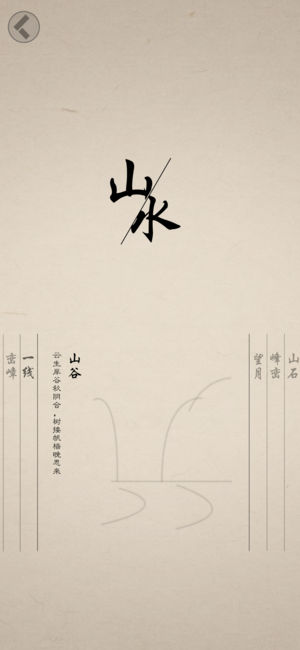 山水
山石
峰峦
望月
山谷
云生岸谷秋阴合，树接帆樯晚思来
一线
峦嶂